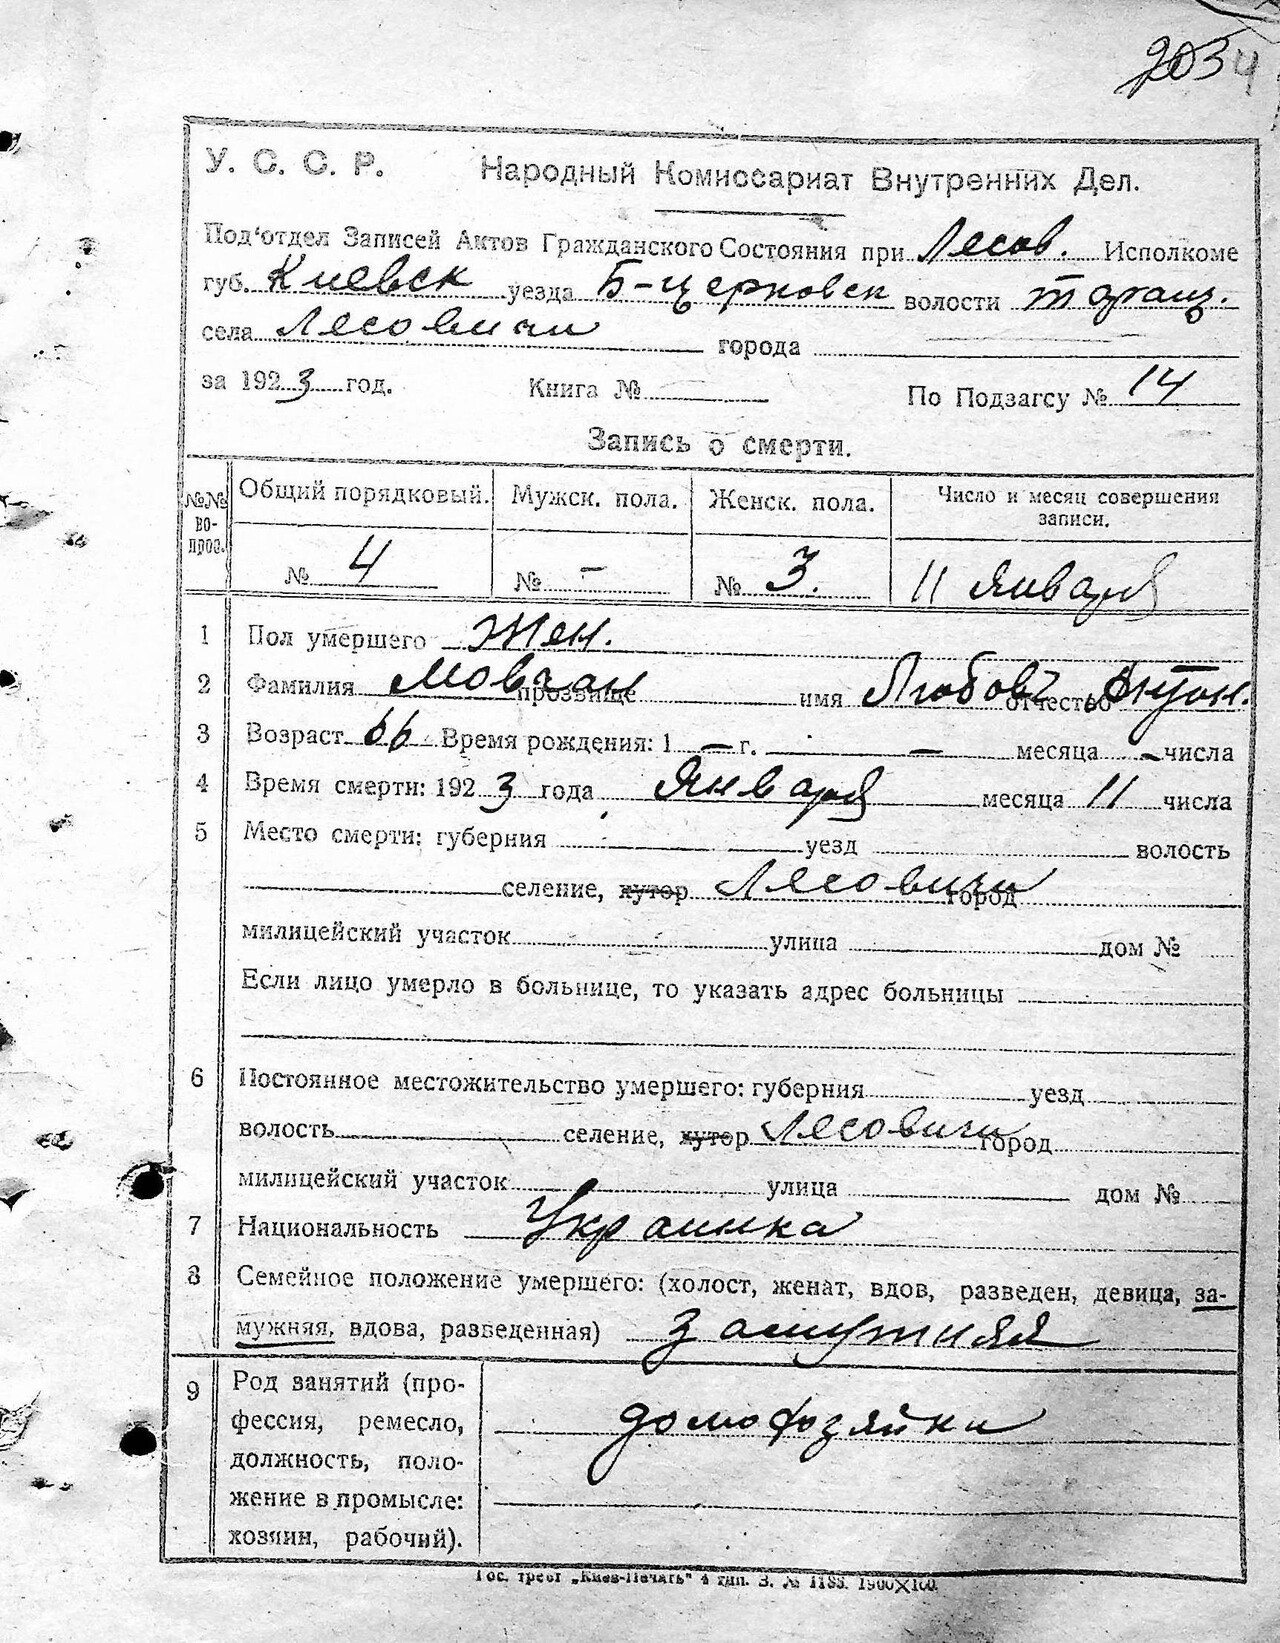 2034
У. С. С. Р. Народный Комиссариат Внутренних Дел.
Под‘отдел Записей Актов Гражданского Состояния при Лесов. Исполкоме
губ. Киевск уезда Б-церковск волости таращ.
села Лесовичи города
за 1923 год. Книга № По Подзагсу № 14
Запись о смерти.
№№ вопрос. Общий порядковый. Мужск. пола. Женск. пола. Число и месяц совершения записи.
№ 4 № – № 3. 11 Января
1 Пол умершего Жен.
2 Фамилия Мовчан прозвище имя Любовъ отчество Антон.
3 Возраст 66 Время рождения: 1 — г. — месяца - числа
4 Время смерти: 1923 года Января месяца 11 числа
5 Место смерти: губерния уезд волость
селение, хутор Лесовичи город
милицейский участок улица дом №
Если лицо умерло в больнице, то указать адрес больницы
6 Постоянное местожительство умершего: губерния уезд
волость селение, хутор Лесовичи город
милицейский участок улица дом №
7 Национальность Украинка
8 Семейное положение умершего: (холост, женат, вдов, разведен, девица, за-
мужняя, вдова, разведенная) замужняя
9 Род занятий (про-
фессия, ремесло,
должность, поло-
жение в промысле:
хозяин, рабочий).
домохозяйка
Гос. трест „Киев-Печать“ 4 тип. З. № 1183. 1900×100.